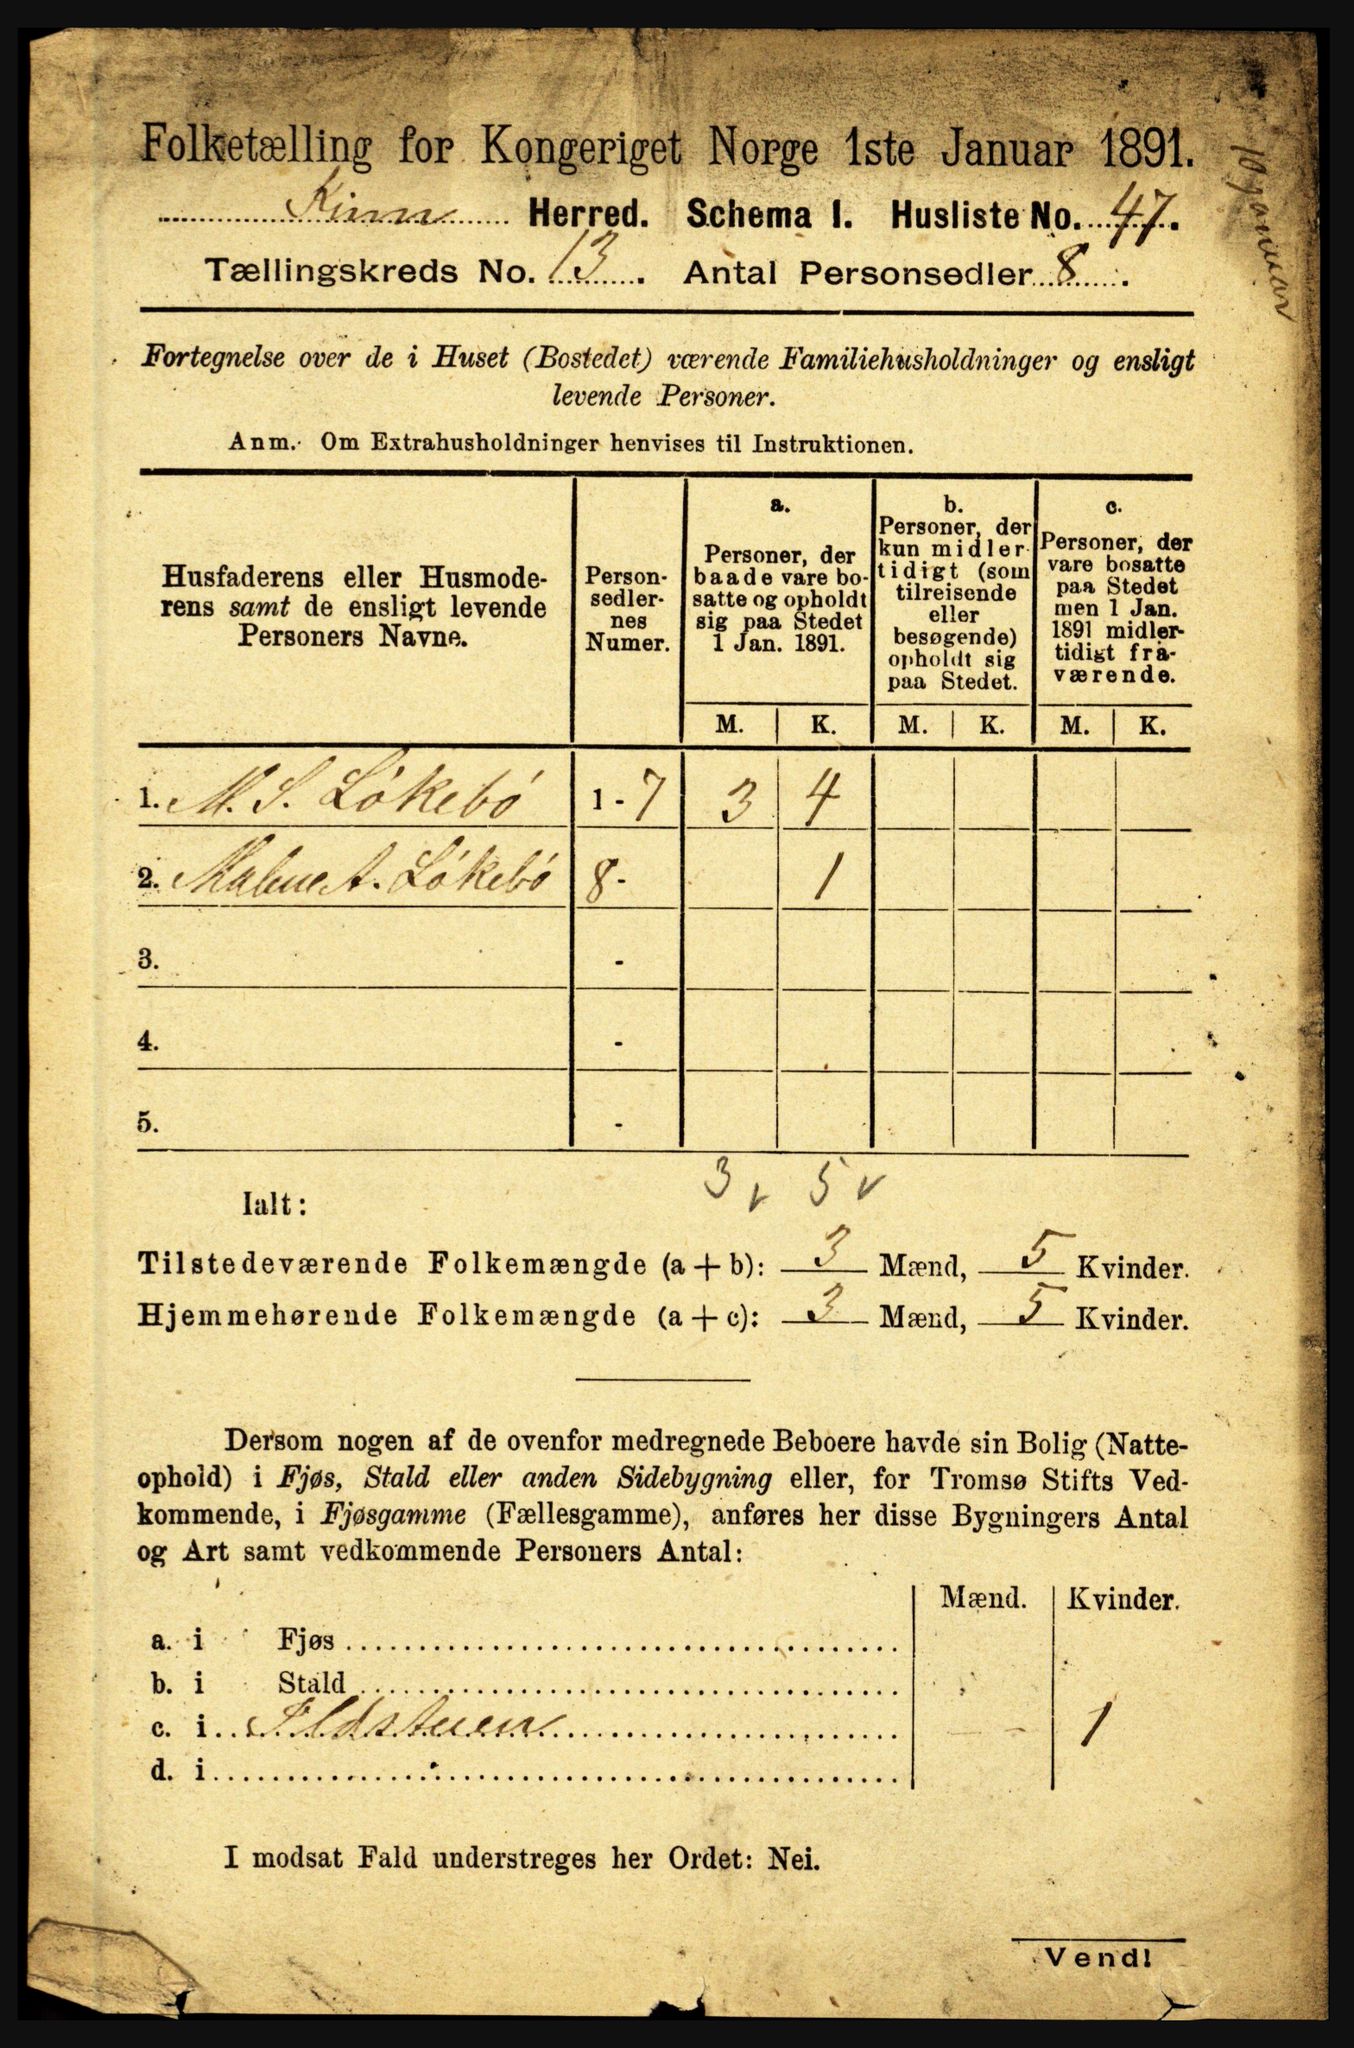 Folketælling for Kongeriget Norge 1ste Januar 1891.
Kinn Herred. Schema I. Husliste No. 47.
Tællingskreds No. 13. Antal Personsedler 8.
10 januar
Fortegnelse over de i Huset (Bostedet) værende Familiehusholdninger og ensligt
levende Personer.
Anm. Om Extrahusholdninger henvises til Instruktionen.
Husfaderens eller Husmode-
rens samt de ensligt levende
Personers Navne.
Person-
sedler-
nes
Numer.
a.
Personer, der
baade vare bo-
satte og opholdt
sig paa Stedet
1 Jan. 1891.
b.
Personer, der
kun midler-
tidigt (som
tilreisende
eller
besøgende)
opholdt sig
paa Stedet.
c.
Personer, der
vare bosatte
paa Stedet
men 1 Jan.
1891 midler-
tidigt fra-
værende.
M. K. M. K. M. K.
1. M. S. Lókebó 1 - 7 3 4
2. Malene A. Lókebó 8 - 1
3. -
4. -
5. -
3 v 5 v
Ialt:
Tilstedeværende Folkemængde (a + b): 3 Mænd, 5 Kvinder.
Hjemmehørende Folkemængde (a + c): 3 Mænd, 5 Kvinder.
Dersom nogen af de ovenfor medregnede Beboere havde sin Bolig (Natte-
ophold) i Fjøs, Stald eller anden Sidebygning eller, for Tromsø Stifts Ved-
kommende, i Fjøsgamme (Fællesgamme), anføres her disse Bygningers Antal
og Art samt vedkommende Personers Antal:
Mænd. Kvinder.
a. i Fjøs
b. i Stald
c. i Ildstuen 1
d. i
I modsat Fald understreges her Ordet: Nei.
Vend!